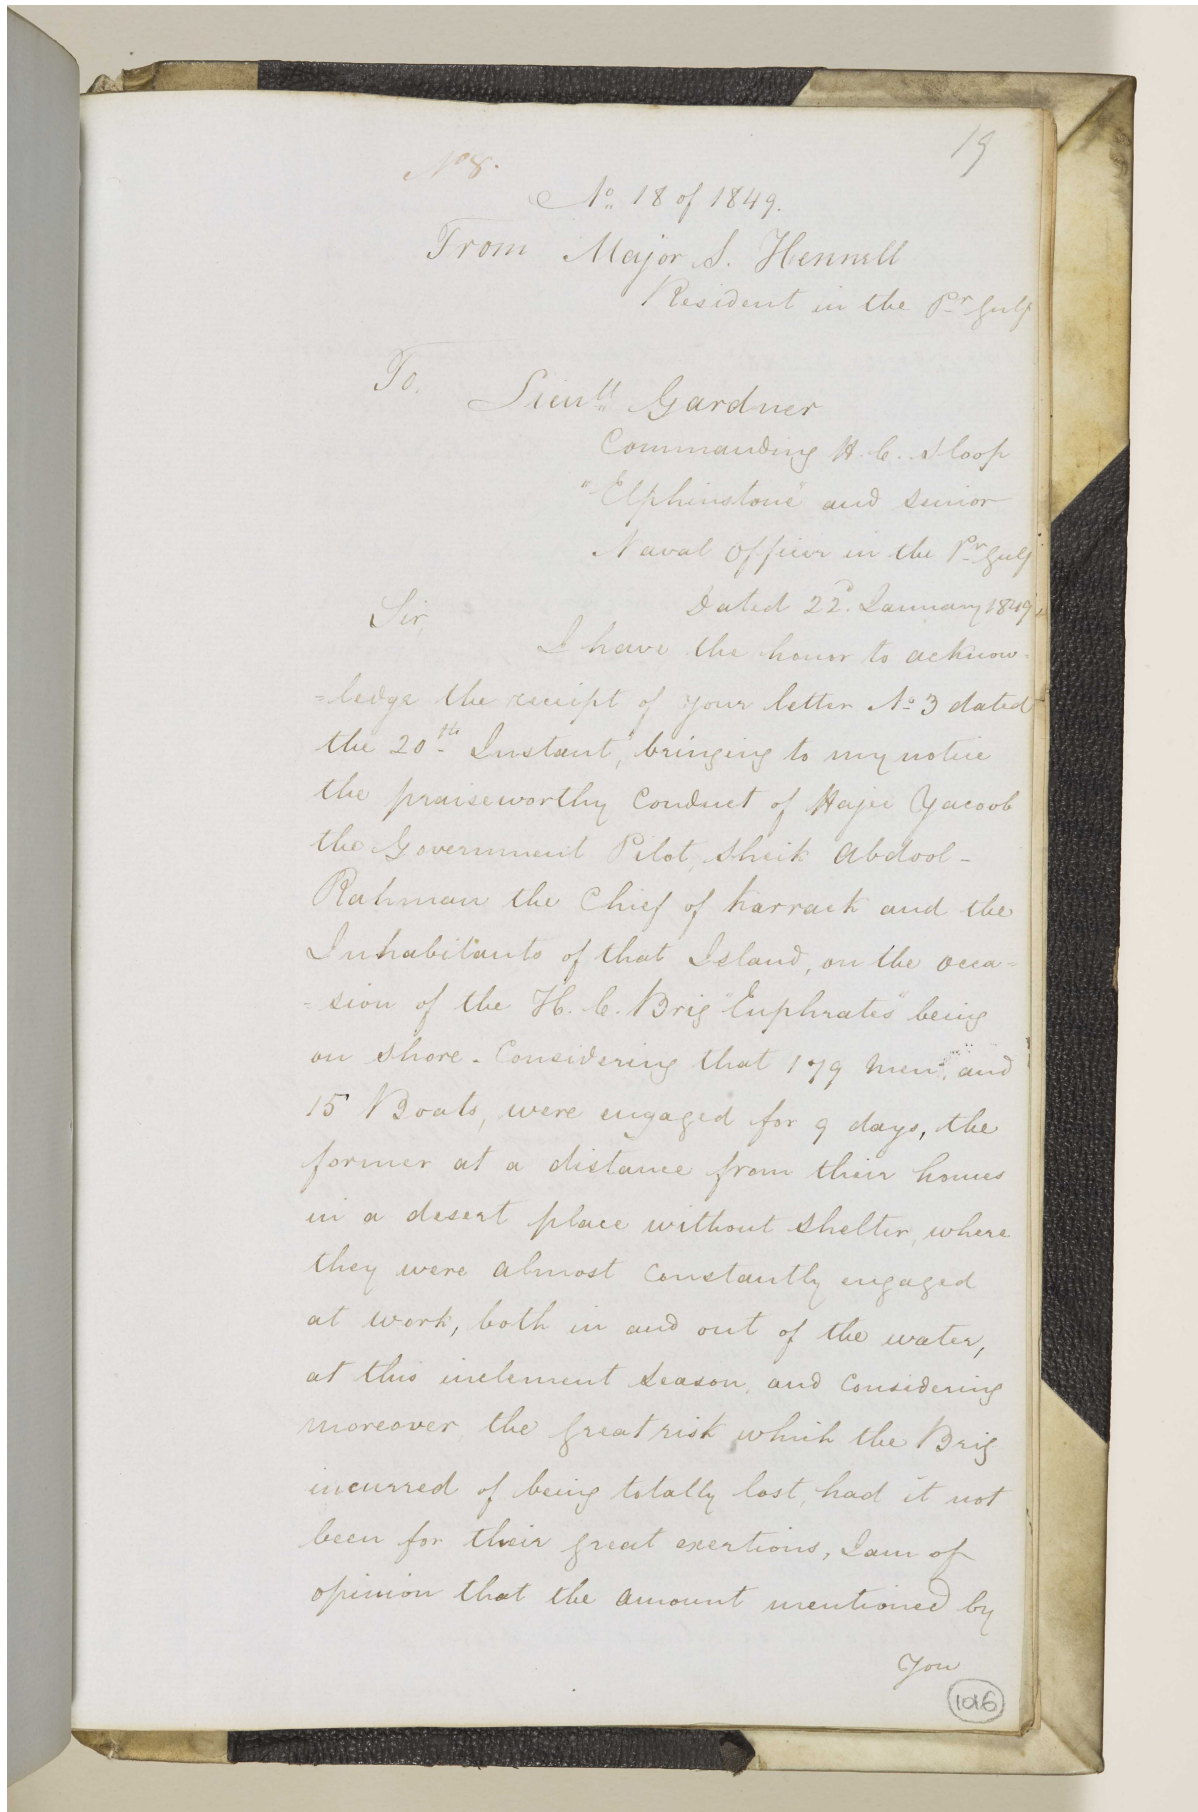 19
No 8.
No. 18 of 1849.
From Major S. Hennell
Resident in the Pr Gulf
To.
Lieutt Gardner
Commanding H. C. Sloop
"Elphinstone" and senior
Naval Officer in the Pr Gulf
Dated 22d. January 1849.
Sir,
I have the honor to acknow-
=ledge the receipt of your letter No 3 dated
the 20th Instant, bringing to my notice
the praiseworthy Conduct of Hajee Yacoob
the Government Pilot, Sheik Abdool-
Rahman the Chief of Karrack and the
Inhabitants of that Island, on the occa=
=sion of the H. C. Brig "Euphrates" being
on shore. Considering that 179 men, and
15 Boats, were engaged for 9 days, the
former at a distance from their homes
in a desert place without shelter, where
they were almost Constantly engaged
at work, both in and out of the water,
at this inclement season, and Considering
moreover, the great risk which the Brig
incurred of being totally lost, had it not
been for their great exertions, I am of
opinion that the amount mentioned by
You
1016